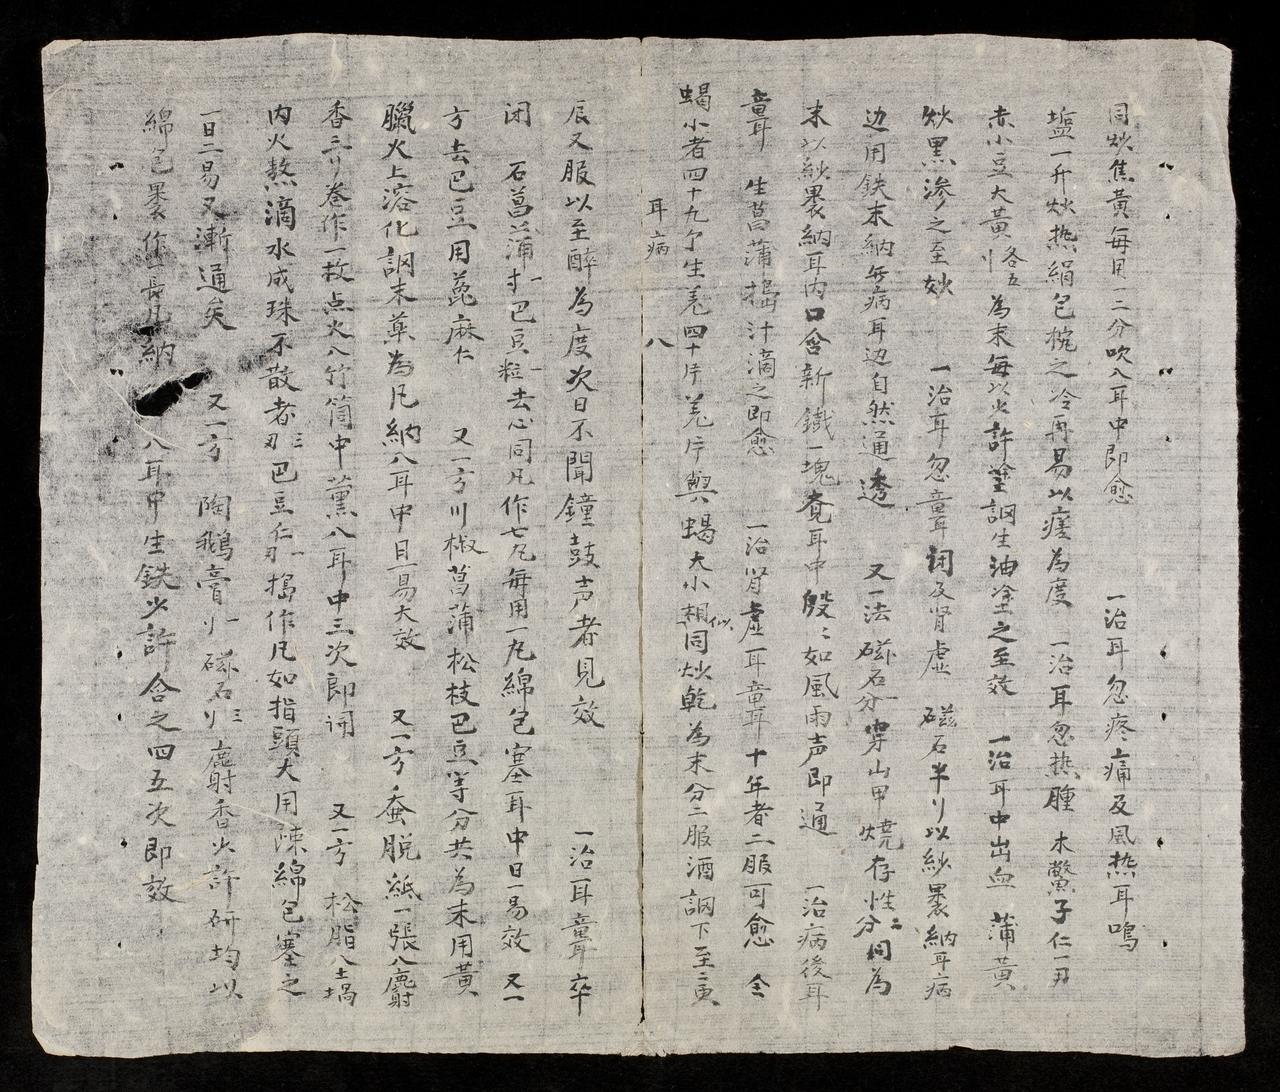 同炒焦黃每用一二分吹入耳中即愈 一治耳忽疼痛及風热耳鳴
塩一升炒热絹包枕之冷再易以瘥為度 一治耳忽热腫 木鱉子仁一刃
赤小豆大黃各五刂為末每以少許調生油塗之至效 一治耳中出血 蒲黃
炒黑渗之至妙 一治耳忽聾闭及肾虚 磁石半刂以紗裹納耳病
边用鉄末納無病耳边自然通透 又一法 磁石分穿山甲燒存性二分同為
末以紗裹納耳内口含新鐵一塊覚耳中殷〻如風雨声即通 一治病後耳
聾 生菖蒲搗汁滴之即愈 一治肾虚耳聾十年者二服可愈 全
蝎小者四十九个生羌四十片羌片與蝎大小相似同炒乾為末分二服酒調下至二更
耳病 八
辰又服以至醉為度次日不聞鐘鼓声者見效 一治耳聾卒
闭 石菖蒲一寸巴豆一粒去心同凡作七丸每用一丸綿包塞耳中日一易效 又一
方去巴豆用萞麻仁 又一方川椒菖蒲松枝巴豆等分共為末用黃
臘火上溶化調末藥為凡納入耳中日一易大效 又一方蚕脱紙一張入麝
香三刂卷作一枚点火入竹筒中薰入耳中三次即闭 又一方 松脂入土堝
内火熬滴水成珠不散者三刃巴豆仁一刃搗作凡如指頭大用陳綿包塞之
一日二易又漸通矣 又一方 陶鵝膏一刂磁石三刂麝香少許研均以
綿包裹作長凡納入耳中生鉄少許含之四五次即效